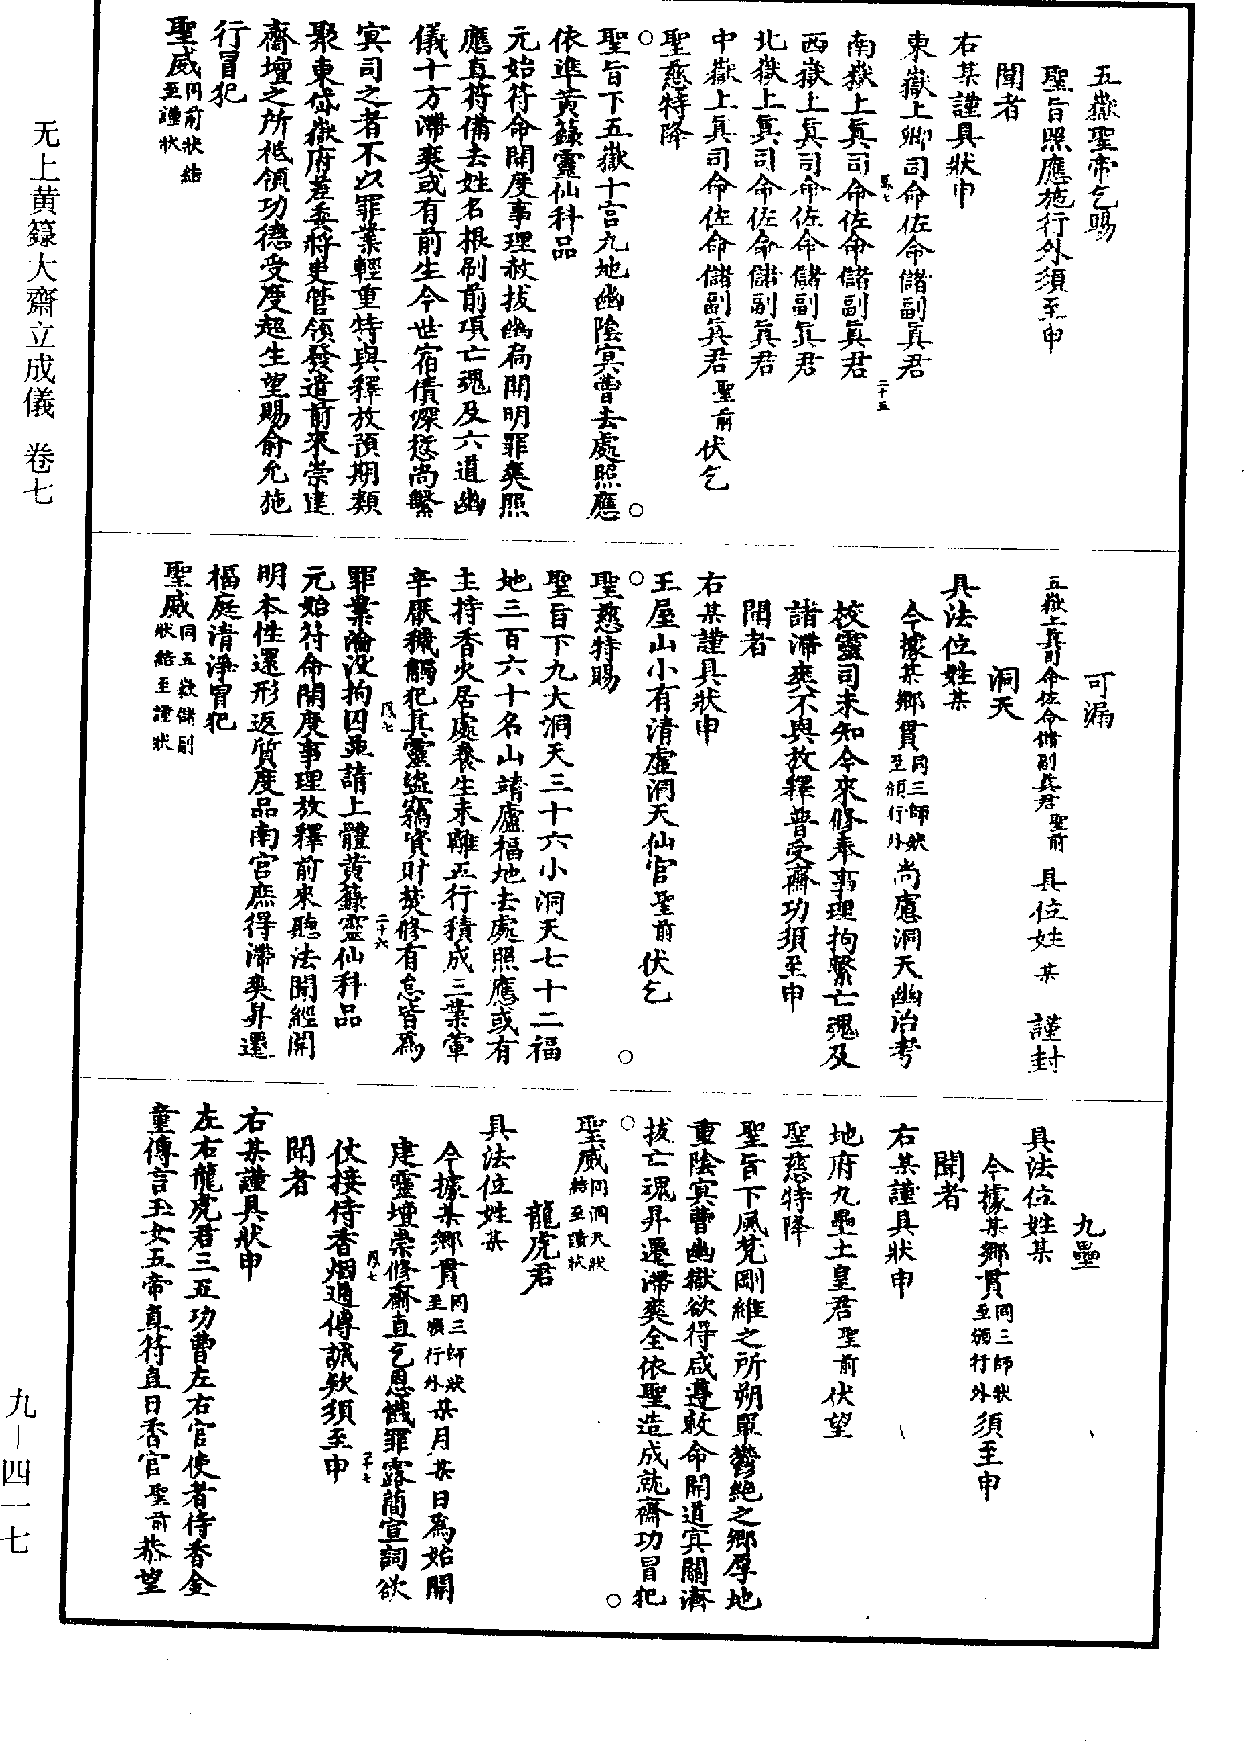 五嶽聖帝乞賜
聖旨照應施行外須至申
聞者
右某謹具狀申
東嶽上卿司命佐命儲副真君
南嶽上真司命佐命儲副真君
西嶽上真司命佐命儲副真君
北嶽上真司命佐命儲副真君
中嶽上真司命佐命儲副真君聖前伏乞
聖慈特降
聖旨下五嶽十宮九地幽陰冥曹去處照應
依準黃籙靈仙科品
元始符命開度事理赦拔幽扃開明罪爽照
應直符備去姓名根刷前項亡魂及六道幽
儀十方滯爽或有前生今世宿債深愆尚繫
冥司之者不以罪業輕重特與釋放預期類
聚東岱嶽府差委將吏管領發遣前來崇建
齋壇之所祗領功德受度超生望賜俞允施
行冒犯
聖威同前狀結至謹狀
可漏
五嶽上真司命佐命儲副真君聖前 具位姓某 謹封
洞天
具法位姓某
今據某鄉貫同三師狀至頒行外尚慮洞天幽治考
校靈司未知今來修奉事理拘繫亡魂及
諸滯爽不與放釋普受齋功須至申
聞者
右某謹具狀申
王屋山小有清虛洞天仙官聖前伏乞
聖慈特賜
聖旨下九大洞天三十六小洞天七十二福
地三百六十名山靖廬福地去處照應或有
主持香火居處養生未離五行積成三業葷
辛厭穢觸犯真靈盜竊資財焚修有怠皆為
罪業淪沒拘囚並請上體黃籙靈仙科品
元始符命開度事理放釋前來聽法聞經開
明本性還形返質度品南宮庶得滯爽昇遷
福庭清淨冒犯
聖威同五嶽儲副狀結至謹狀
九壘
具法位姓某
今據某鄉貫同三師狀至頒行外須至申
聞者
右某謹具狀申
地府九壘土皇君聖前伏望
聖慈特降
聖旨下風梵剛維之所朔單鬱絕之鄉厚地
重陰冥曹幽獄欲得咸遵敕命開道冥關濟
拔亡魂昇遷滯爽全依聖造成就齋功冒犯
聖威同洞天狀結至謹狀
龍虎君
具法位姓某
今據某鄉貫同三師狀至頒行外某月某日為始開
建靈壇崇修齋直乞恩懺罪露簡宣詞欲
仗接侍香烟通傳誠款須至申
聞者
右某謹具狀申
左右龍虎君三五功曹左右官使者侍香金
童傳言玉女五帝直符直日香官聖前恭望
无上黄籙大齋立成儀 卷七
九—四一七